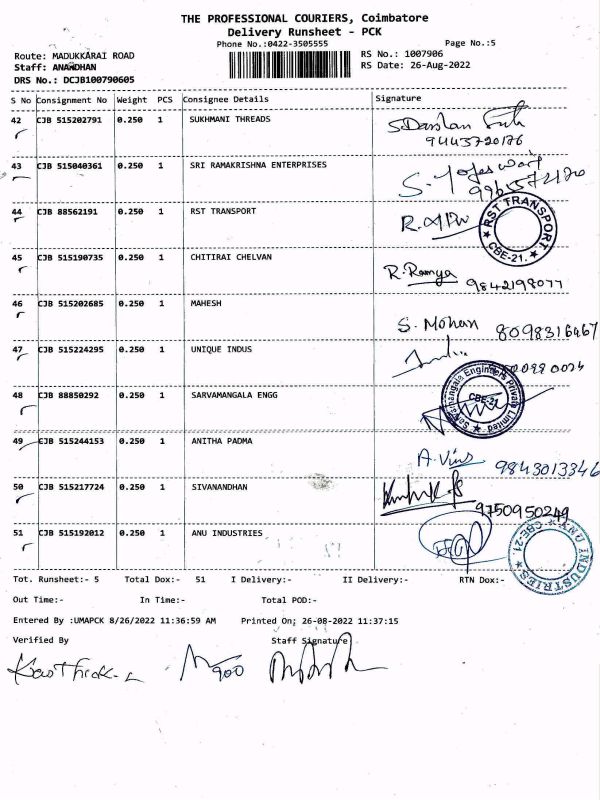 THE PROFESSIONAL COURIERS, Coimbatore
Delivery Runsheet - PCK
Phone No.:0422-3505555
Page No.:5
Route: MADUKKARAI ROAD
RS No.: 1007906
Staff: ANANDHAN
RS Date: 26-Aug-2022
DRS No.: DCJB100790605
S No Consignment No Weight PCS Consignee Details Signature
42 CJB 515202791 0.250 1 SUKHMANI THREADS
9443720176
43 CJB 515040361 0.250 1 SRI RAMAKRISHNA ENTERPRISES
44 CJB 88562191 0.250 1 RST TRANSPORT
RST TRANSPORT CBE-21.
45 CJB 515190735 0.250 1 CHITIRAI CHELVAN
R. Ramya 9842198077
46 CJB 515202685 0.250 1 MAHESH
S. Mohan 8098316467
47 CJB 515224295 0.250 1 UNIQUE INDUS
48 CJB 88850292 0.250 1 SARVAMANGALA ENGG
Sarvamangala Engineers Private Limited CBE-21
49 CJB 515244153 0.250 1 ANITHA PADMA
9843013346
50 CJB 515217724 0.250 1 SIVANANDHAN
9750950249
51 CJB 515192012 0.250 1 ANU INDUSTRIES
ANU INDUSTRIES CBE-21
Tot. Runsheet:- 5 Total Dox:- 51 I Delivery:- II Delivery:- RTN Dox:-
Out Time:- In Time:- Total POD:-
Entered By :UMAPCK 8/26/2022 11:36:59 AM Printed On; 26-08-2022 11:37:15
Verified By Staff Signature
900